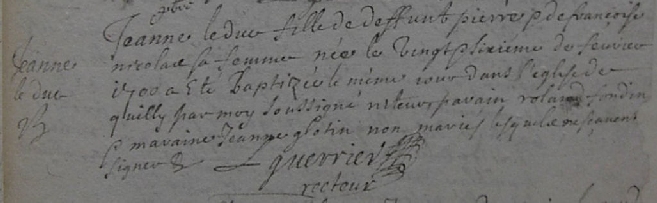 Jeanne
le duc
Jeanne le duc fille de deffunt pierre & de francoise
nicolas sa femme née le vingtsixieme de feuvrier
1700 a été baptizée le meme iour dans l'eglise de
quilly par moy soussigné recteur parain roland
& maraine Jeanne glotin non mariés lesquels ne sçavent
signer &
guerrier
recteur